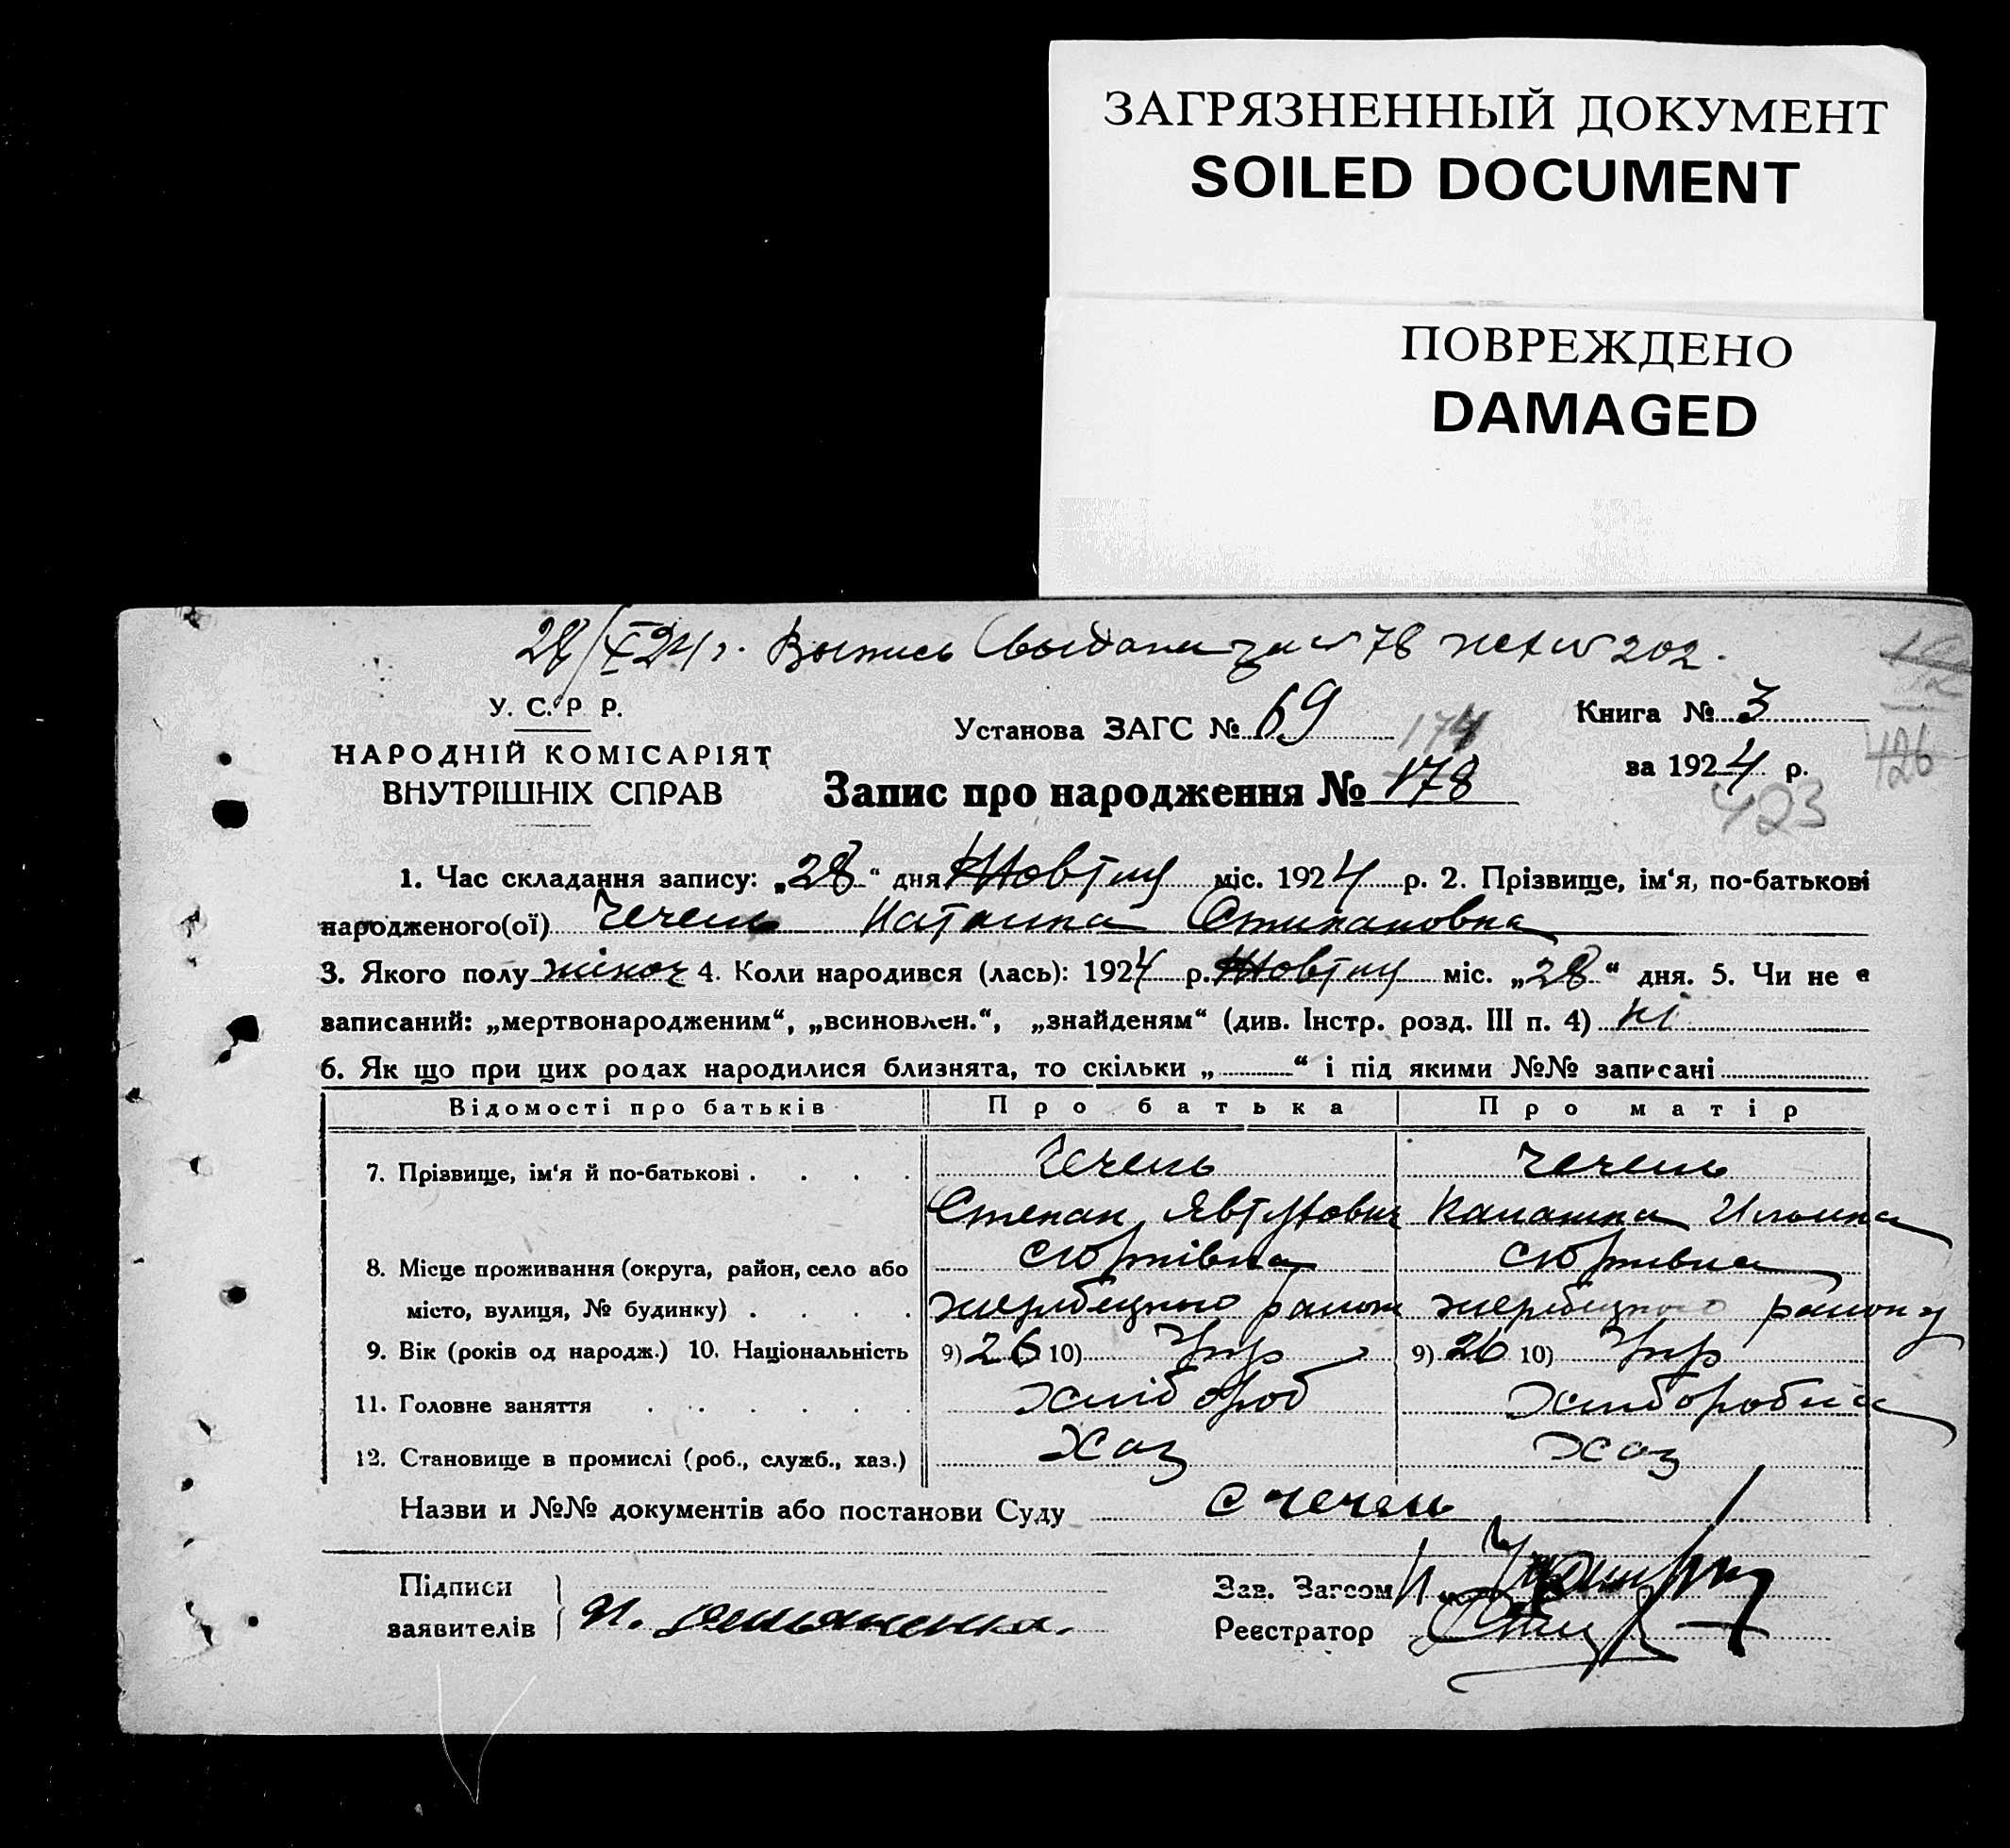 ЗАГРЯЗНЕННЫЙ ДОКУМЕНТ
SOILED DOCUMENT
ПОВРЕЖДЕНО
DAMAGED
28/X 24 г. Выпись выдана за № 78 202.
У. С. Р. Р.
НАРОДНІЙ КОМІСАРІЯТ
ВНУТРІШНІХ СПРАВ
Установа ЗАГС № 69
174
Запис про народження № 178
Книга № 3
за 1924 р.
426
423
1. Час складання запису: „28“ дня Жовтня міс. 1924 р. 2. Прізвище, ім‘я, по-батькові
народженого(ої) Чечель Степановна
3. Якого полу жіноч 4. Коли народився (лась): 1924 р. Жовтня міс. „28“ дня. 5. Чи не є
записаний: „мертвонародженим“, „всиновлен.“, „знайденям“ (див. Інстр. розд. III п. 4) ні
6. Як що при цих родах народилися близнята, то скільки „ “ і під якими №№ записані
Відомості про батьків Про батька Про матір
7. Прізвище, ім‘я й по-батькові Чечель Чечель
Степан Ільїнна
8. Місце проживання (округа, район, село або
місто, вулиця, № будинку) району
9. Вік (років од народж.) 10. Національність 9) 26 10) Укр 9) 26 10) Укр
11. Головне заняття хлібороб хліборобка
12. Становище в промислі (роб., служб., хаз.) Хаз Хаз
Назви и №№ документів або постанови Суду С Чечель
Підписи
заявителів
Зав. Загсом
Реєстратор